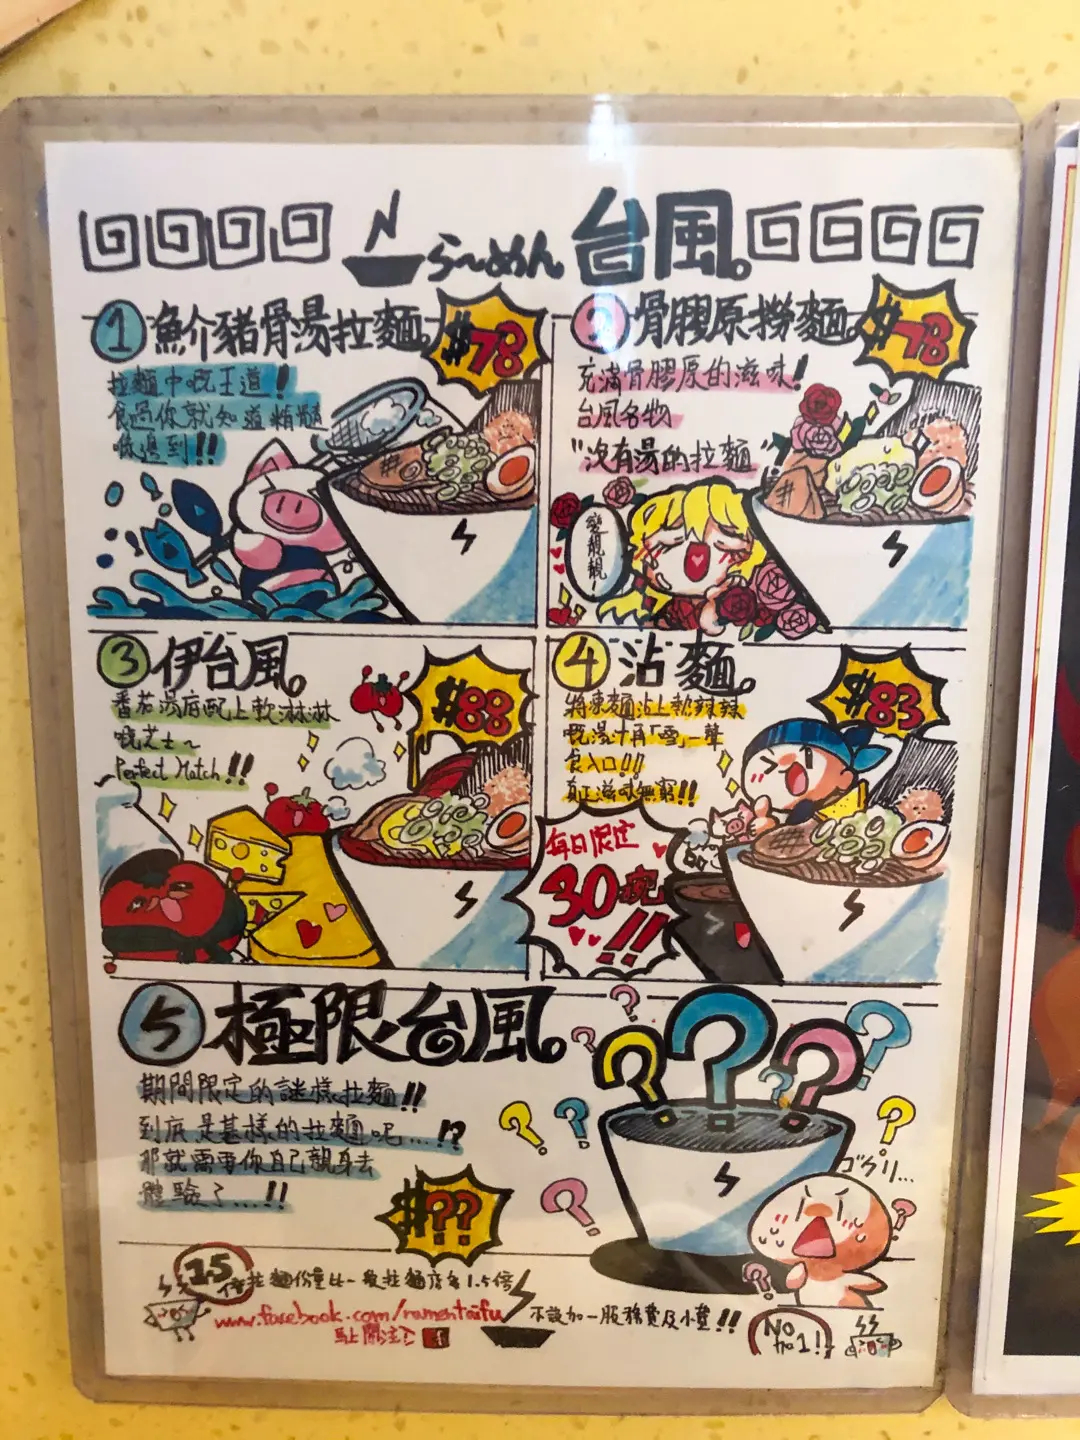 らーめん 台風。
1 魚介豬骨湯拉麵。
$78
拉麵中嘅王道!
食過你就知道精髓
喺邊到!!
2 骨膠原撈麵。
$78
充滿骨膠原的滋味!
台風名物
"沒有湯的拉麵"
變靚靚!
3 伊台風。
$88
番茄湯底配上軟淋淋
嘅芝士~
Perfect Match!!
4 沾麵。
$83
將凍麵沾上熱辣辣
嘅湯汁再「雪」一聲
食入口!!
真正滋味無窮!!
每日限定
30碗
!!
5 極限台風。
期間限定的謎樣拉麵!!
到底是甚樣的拉麵呢...!?
那就需要你自己親身去
體驗了...!!
$??
ゴクリ...
1.5倍 拉麵份量比一般拉麵店多1.5倍
www.facebook.com/ramentaifu
不設加一服務費及小費!!
No no 1!!